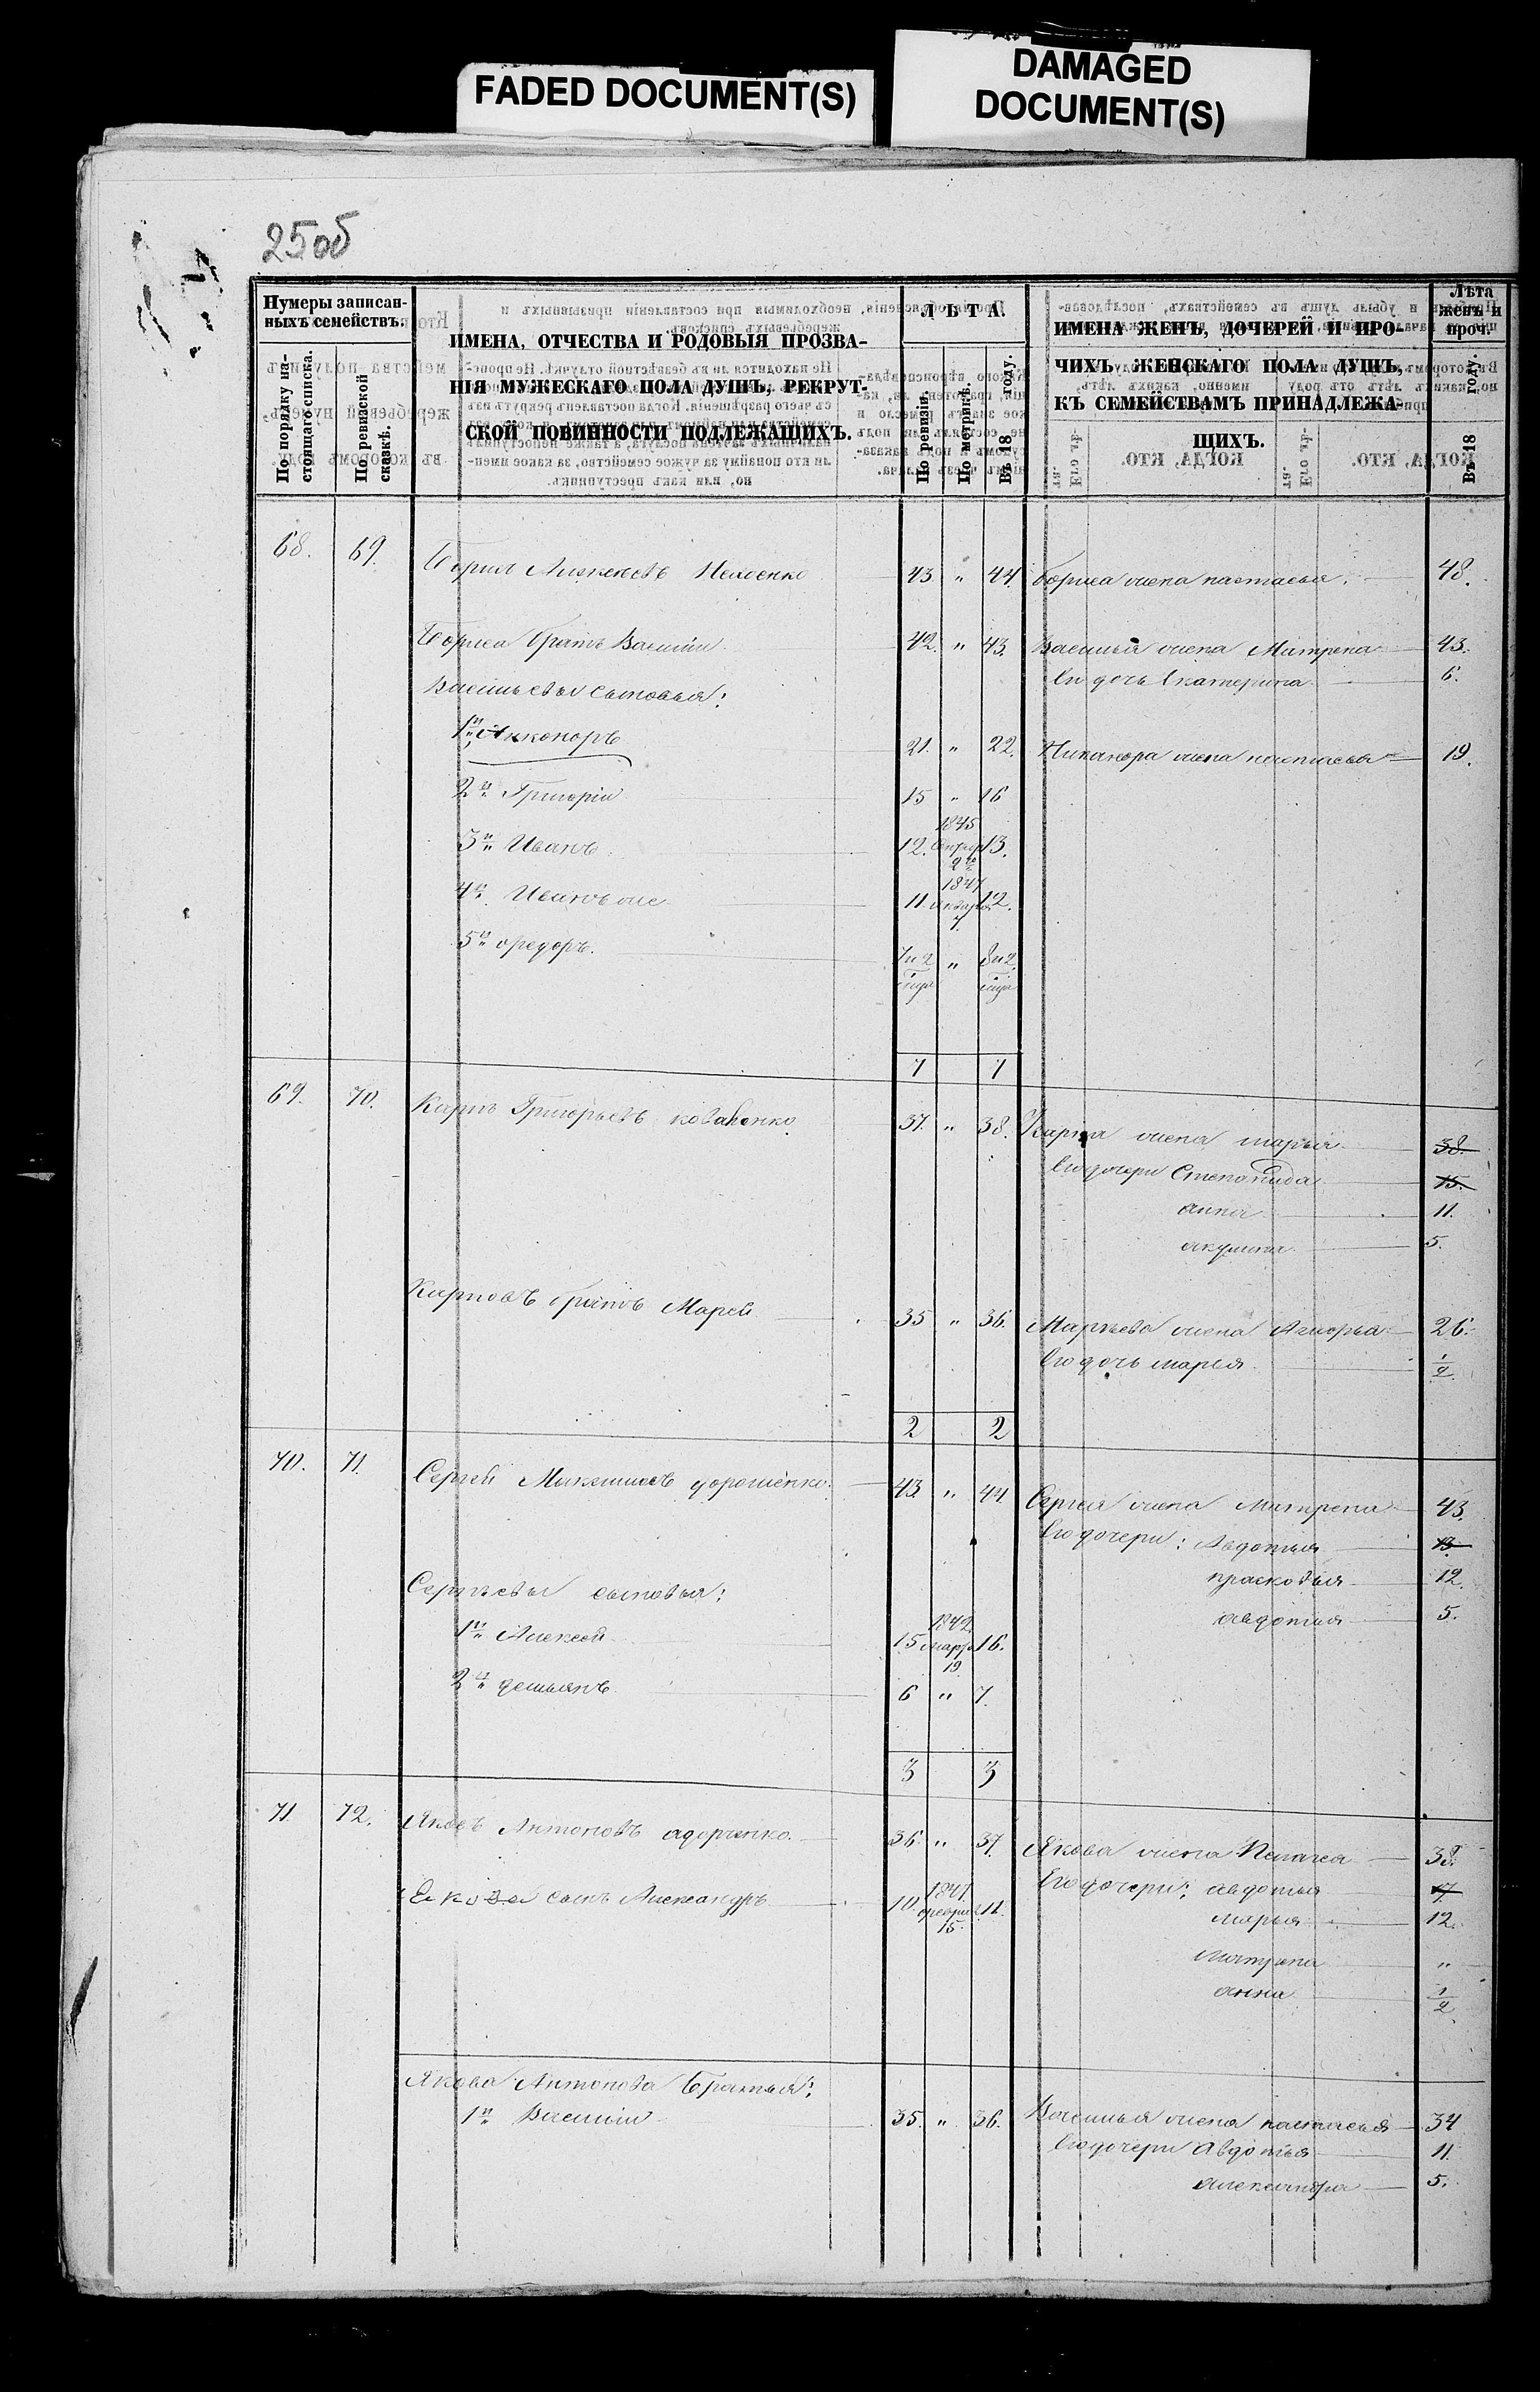 FADED DOCUMENT(S)
DAMAGED
DOCUMENT(S)
25об
Нумеры записан-
ныхъ семействъ.
По порядку на-
стоящаго списка.
По ревизской
сказкѣ.
ИМЕНА, ОТЧЕСТВА И РОДОВЫЯ ПРОЗВА-
НІЯ МУЖЕСКАГО ПОЛА ДУШЪ, РЕКРУТ-
СКОЙ ПОВИННОСТИ ПОДЛЕЖАЩИХЪ.
ЛѢТА.
По ревизіи.
По метрикѣ.
Въ 18 году.
ИМЕНА ЖЕНЪ, ДОЧЕРЕЙ И ПРО-
ЧИХЪ ЖЕНСКАГО ПОЛА ДУШЪ,
КЪ СЕМЕЙСТВАМЪ ПРИНАДЛЕЖА-
ЩИХЪ.
Лѣта
женъ и
проч.
Въ 18 году.
68. 69. 43. " 44. Бориса жена настасья. 48.
Бориса братъ Василіи 42. " 43. Василья жена Матрена 43.
Васильевы сыновья: его дочь Екатерина 6.
1й Никоноръ 21. " 22. Никанора жена настасья 19.
2й Григоріи 15 " 16
3й Иванъ 12. 1845 2го 13.
4й Иванъ же 11. 1847 Января 7 12.
5й федоръ. 7 и 2 " 8 и 2
7 7
69. 70. Карпъ Григорьевъ коваленко 37. " 38. Карпа жена марья 38.
его дочери Степанида 15.
анна 11.
акулина 5.
Карповъ братъ Марей 35 " 36. жена 26.
его дочь марья 1/2
2 2
70. 71. Сергей дорошенко 43. " 44 Сергея жена Матрена 43.
его дочери: Авдотья 13.
прасковья 12.
Сергѣевы сыновья: авдотья 5.
1й Алексей 15 1842. марта 19 16.
2й демьянъ 6 " 7.
3 3
71. 72. Яковъ Антоновъ 36. " 37. Якова жена Пелагея 38.
Якова сынъ Александръ 10. 1847. февраля 15. 11. его дочери: авдотья 17
марья 12.
матрена "
анна 1/2
Якова Антонова братья:
1й Василіи 35. " 36. Василья жена настасья 34
его дочери Авдотья 11.
александра 5.